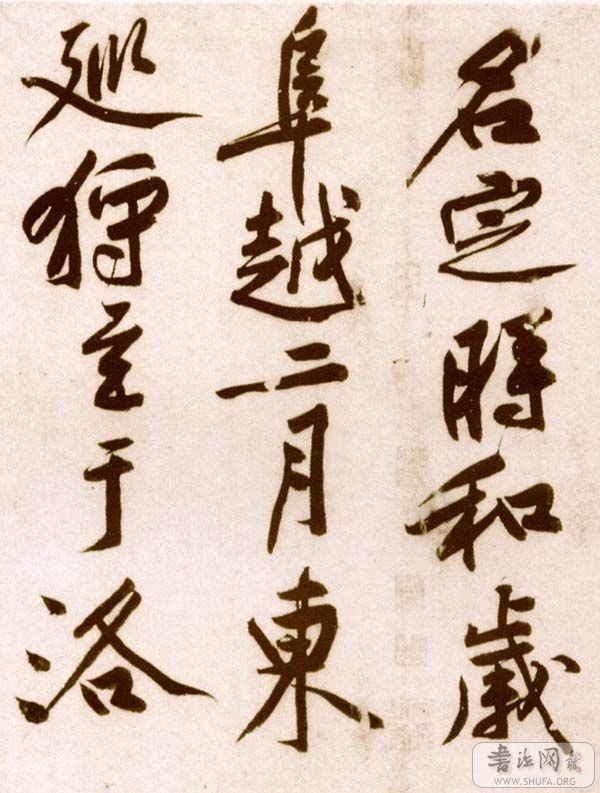 名定時和歲
阜越二月東
廵狩至于洛
書法网
WWW.SHUFA.ORG